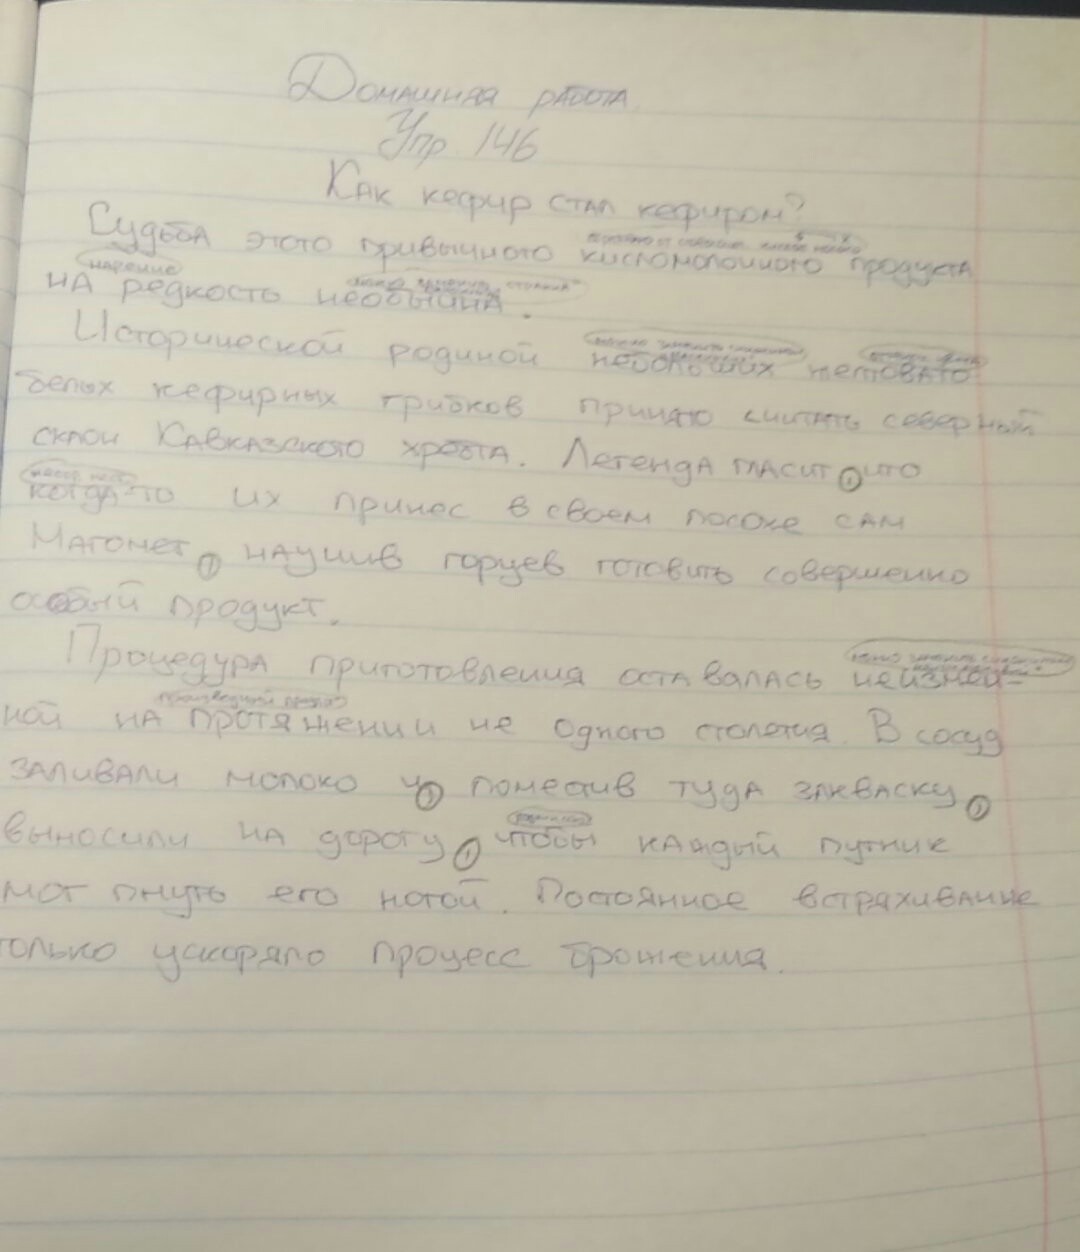 Домашняя работа
Упр 146
Как кефир стал кефиром?
Судьба этого привычного кисломолочного продукта
наречие
на редкость необычна.
Исторической родиной небольших желтовато
белых кефирных грибков принято считать северный
склон Кавказского хребта. Легенда гласит, что
когда-то их принес в своем посохе сам
Магомет, научив горцев готовить совершенно
особый продукт.
Процедура приготовления оставалась неизмен=
ной на протяжении не одного столетия. В сосуд
производный предлог
заливали молоко и, поместив туда закваску,
выносили на дорогу, чтобы каждый путник
мог пнуть его ногой. Постоянное встряхивание
только ускоряло процесс брожения.